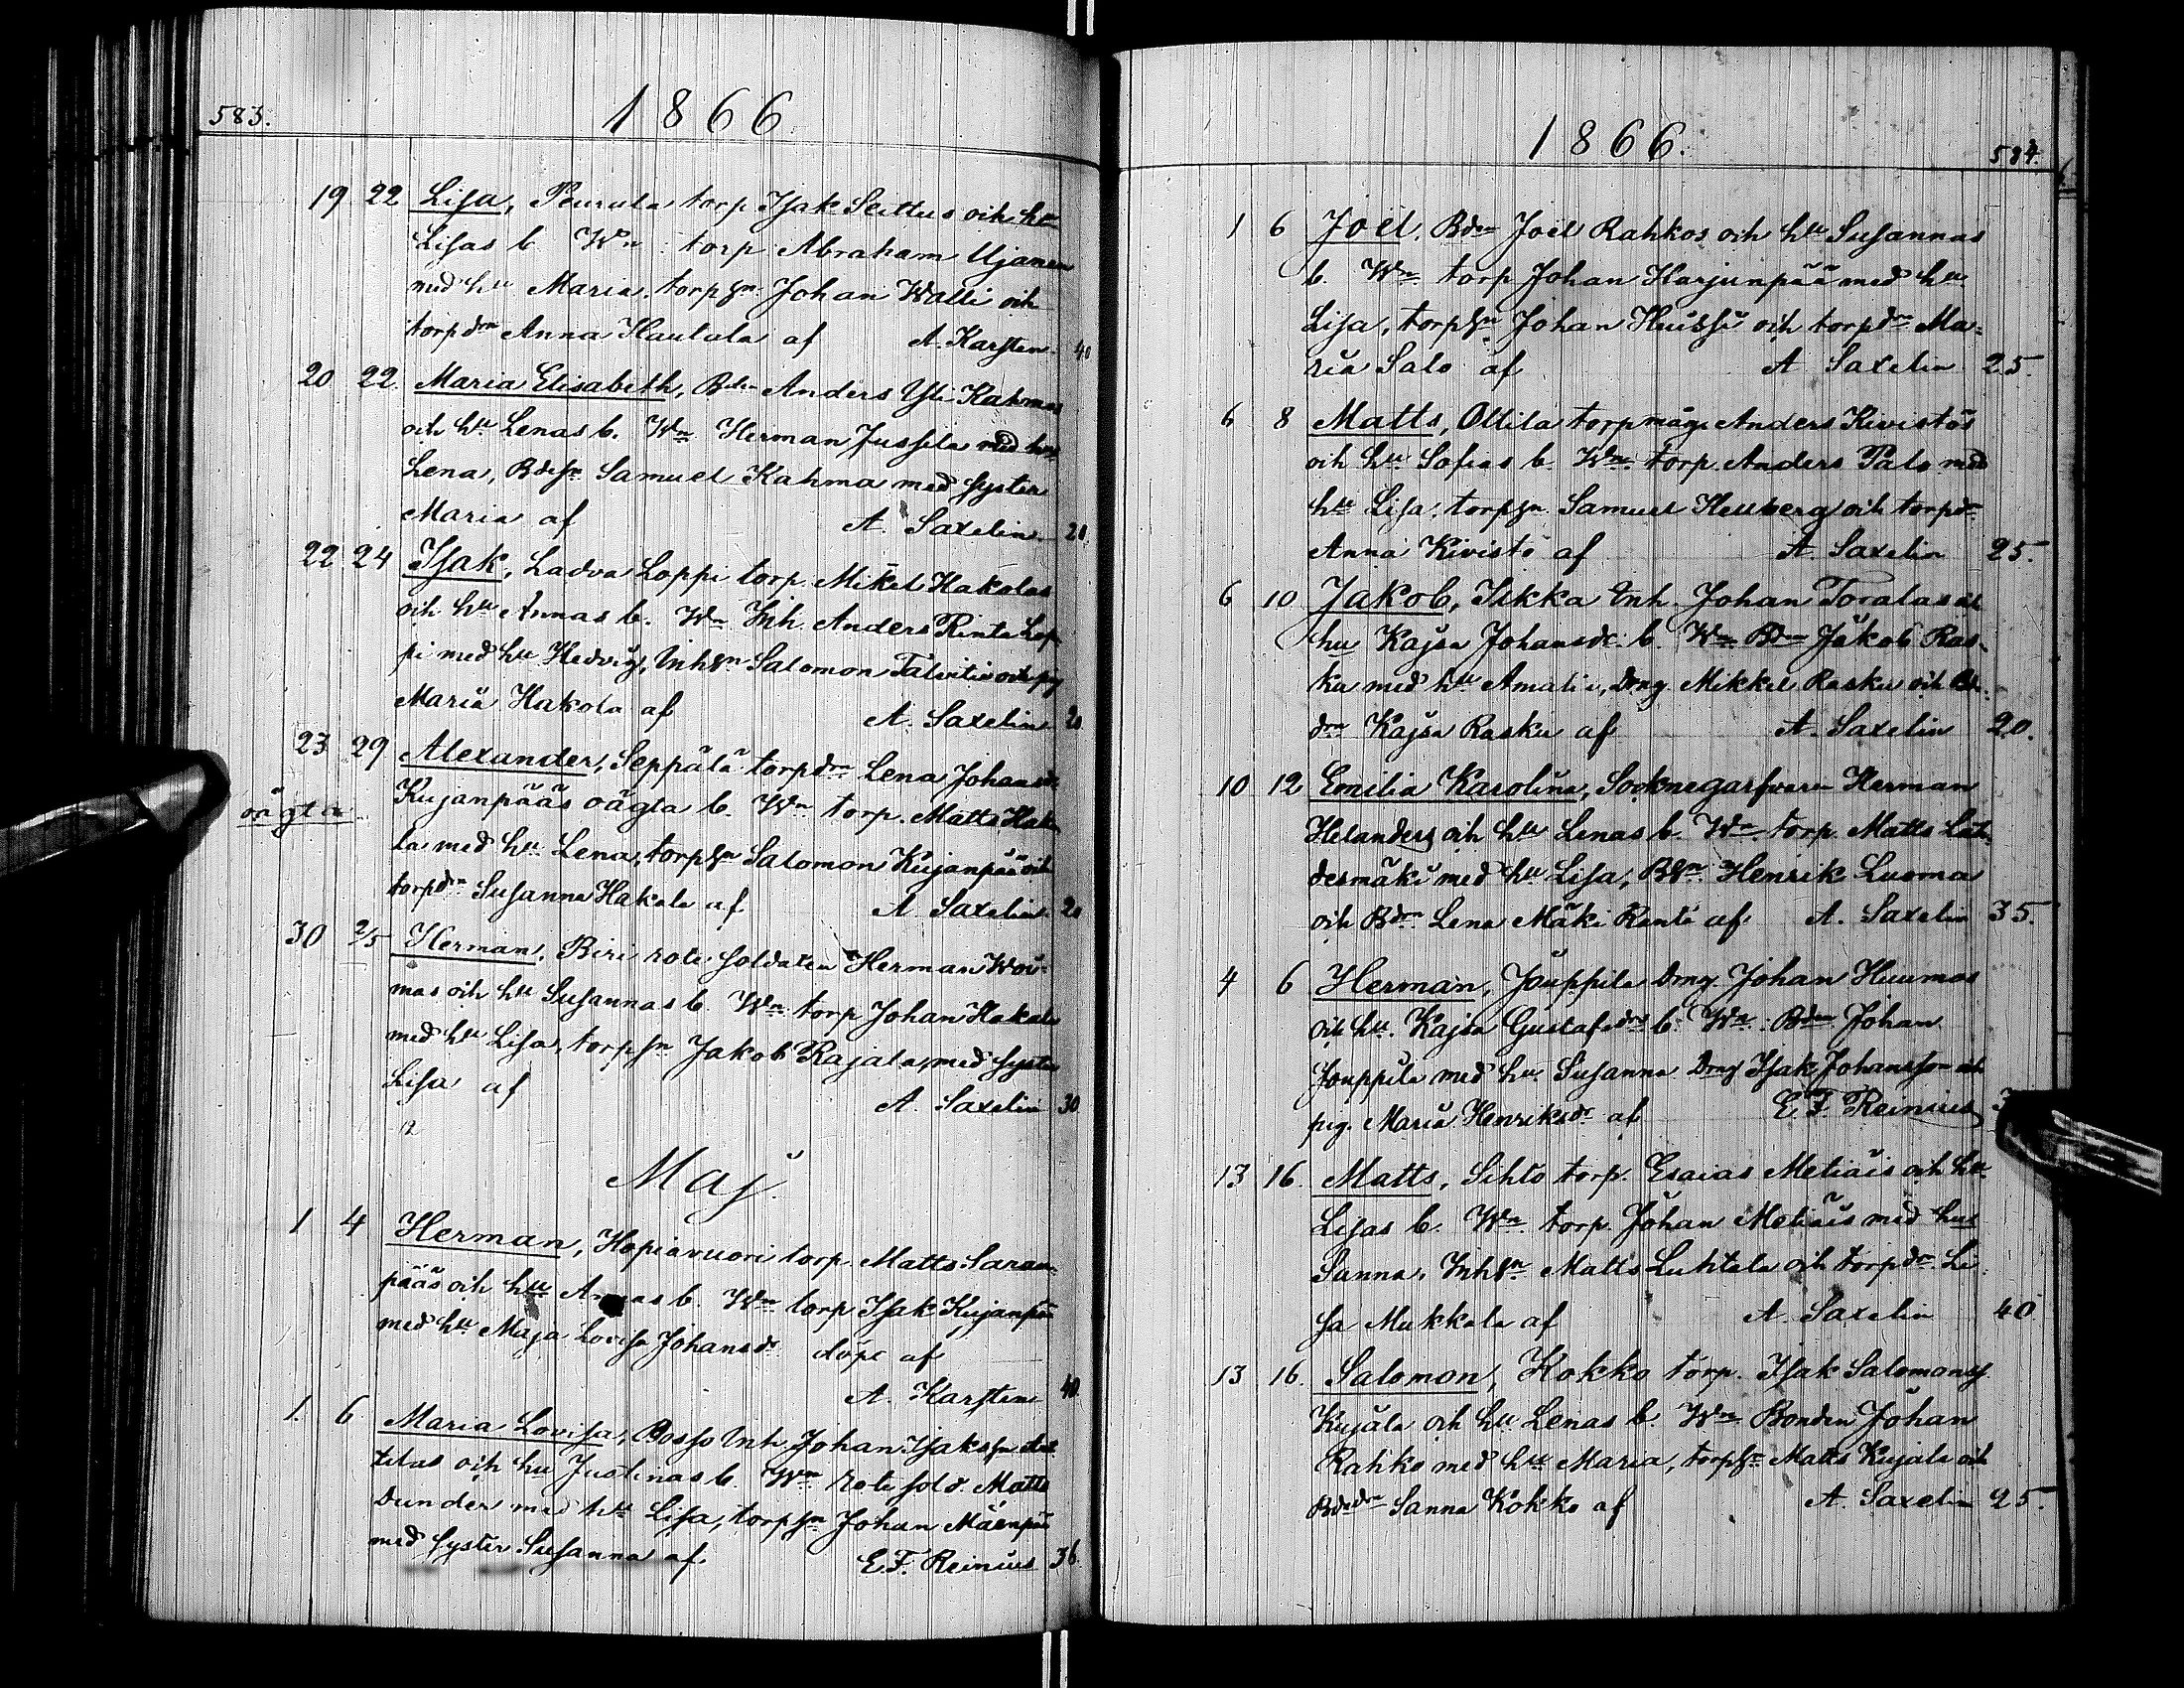 583.
1866
19 22 Lisa, Peurala torp Isak Seittus och htu
Lisas b. Wn torp Abraham Ujanen
med htu Maria, torpsn Johan Walli och
torpdrn Anna Hautala af A. Karsten 40
20 22 Maria Elisabeth, Bden Anders Yli Kahmas
och htu Lenas b. Wn Herman Jussila med htu
Lena, Bdesn Samuel Kahma med syster
Maria af A. Saxelin 20.
22 24 Isak, Ladva Loppi torp. Mikel Hakolas
och htu Annas b. Wn Inh. Anders Rinta Lop
pi med htu Hedvig, Inhsn Salomon Talvitie och pig
Maria Hakola af A. Saxelin 20
23 29 Alexander, Seppälä torpdrn Lena Johansdr
oägta Kujanpääs oägta b. Wn torp. Matts Haka
la med htu Lena, torpsn Salomon Kujanpää och
torpdrn Susanna Hakala af A. Saxelin 20
30 2/5 Herman, Biri rote soldaten Herman Woi-
mas och htu Susannas b. Wn torp Johan Hakala
med htu Lisa, torpsn Jakob Rajala, med syster
Lisa af A. Saxelin 30
12
Maj.
1 4 Herman, Hopiavuori torp. Matts Saran-
pääs och htu Annas b. Wn torp Isak Kujanpää
med htu Maja Lovisa Johansdr döpt af
A. Karsten 40.
1. 6 Maria Lovisa, Posso Inh Johan Isakssn
och hu Justinas b. Wn rote sold. Matts
Dunder med htu Lisa, torpsn Johan Mäenpää
med syster Susanna af E.F. Reinius 36
1866.
584.
1 6 Joel. Bden Joel Rahkos och htu Susannas
b. Wn torp Johan Harjunpää med htu
Lisa, torpsn Johan Huissi och torpdrn Ma-
ria Salo af A Saxelin 25.
6 8 Matts, Ollila torpmåg Anders Kivistös
och htu Sofias b. Wn torp. Anders Palo med
htu Lisa, torpsn Samuel Hellberg och torpdrn
Anna Kivistö af A. Saxelin 25.
6 10 Jakob, Ilkka Inh. Johan Toralas och
hu Kajsa Johansdr b. Wn Bden Jakob Ras-
ku med htu Amalia, Dreng. Mikkel Rasku och Bde-
drn Kajsa Rasku af A. Saxelin 20.
10 12 Emilia Karolina, Socknegarfvaren Herman
Helanders och htu Lenas b. Wn torp. Matts Läh-
desmäki med htu Lisa, Bsn Henrik Luoma
och Bdrn Lena Mäki Ranti af A. Saxelin 35.
4 6 Herman, Jouppila Dreng. Johan Huumos
och htu. Kajsa Gustafsdrs b. Wn Bden Johan
Jouppila med hu Susanna Dreng Isak Johansson och
pig. Maria Henriksdr af E.F. Reinius
13 16. Matts, Sihto torp. Esaias Metiäis och htu
Lisas b. Wn torp. Johan Metiäis med hus
Sanna, Inhsn Matts Luhtala och torpdrn Li
sa Mukkala af A. Saxelin 40
13 16. Salomon, Kokko torp. Isak Salomons.
Kujala och htu Lenas b. Wn Bonden Johan
Rahko med htu Maria, torpsn Matts Kujala och
Bdedrn Sanna Kokko af A. Saxelin 25.